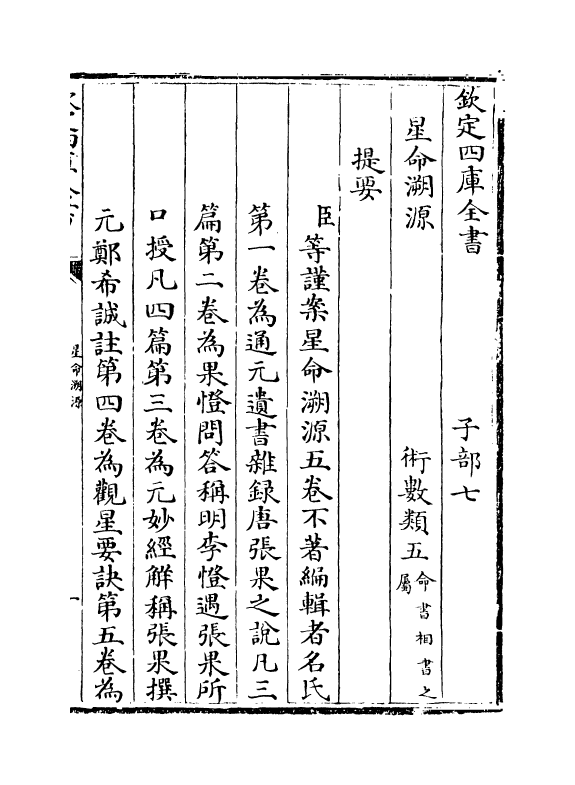 欽定四庫全書　子部七
星命溯源　術數類五命書相書之屬
提要
臣等謹案星命溯源五卷不著編輯者名氏
第一卷為通元遺書雜録唐張果之說凡三
篇第二卷為果燈問答稱明李燈遇張果所
口授凡四篇第三卷為元妙經解稱張果撰
元鄭希誠註第四卷為觀星要訣第五卷為
星命溯源
一